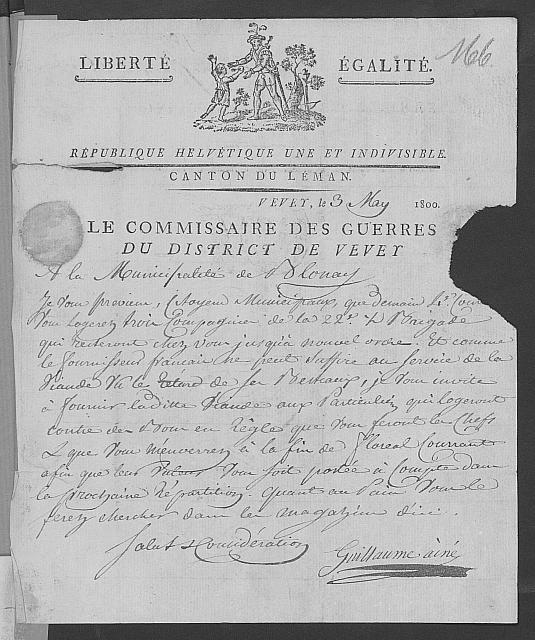 LIBERTÉ ÉGALITÉ.
RÉPUBLIQUE HELVÉTIQUE UNE ET INDIVISIBLE.
CANTON DU LÉMAN.
VEVEY, le 3 May 1800.
LE COMMISSAIRE DES GUERRES
DU DISTRICT DE VEVEY
A la Municipalité de Blonay
Je vous previens, Citoyens Municipaux, que demain
vous logerez trois Compagnies de la 22e. ½ Brigade
qui resteront chez vous jusqu'à nouvel ordre. Et comme
le fournisseur français ne peut suffire au service de la
viande vu le retard de ses Bestiaux, je vous invite
à fournir laditte viande aux Particuliers qui logeront
contre des Bons en règle que vous feront les Chefs
& que vous m'enverrez à la fin de floreal Courrant
afin que leur valeur vous soit portée à compte dans
la prochaine repartition. Quant au Pain vous le
ferez chercher dans les magazins d'ici.
Salut & Considération
Guillaume ainé